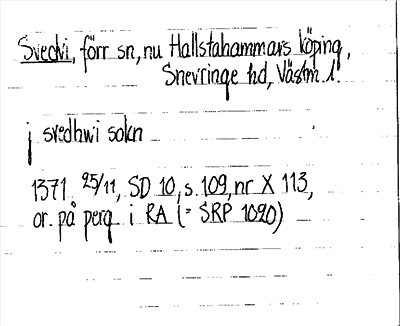 Svedvi, förr sn, nu Hallstahammars köping,
Snevringe hd, Västm. l.
j svedhwi sokn
1371 25/11, SD 10, s. 109, nr X 113,
or. på perg i RA (= SRP 1020)